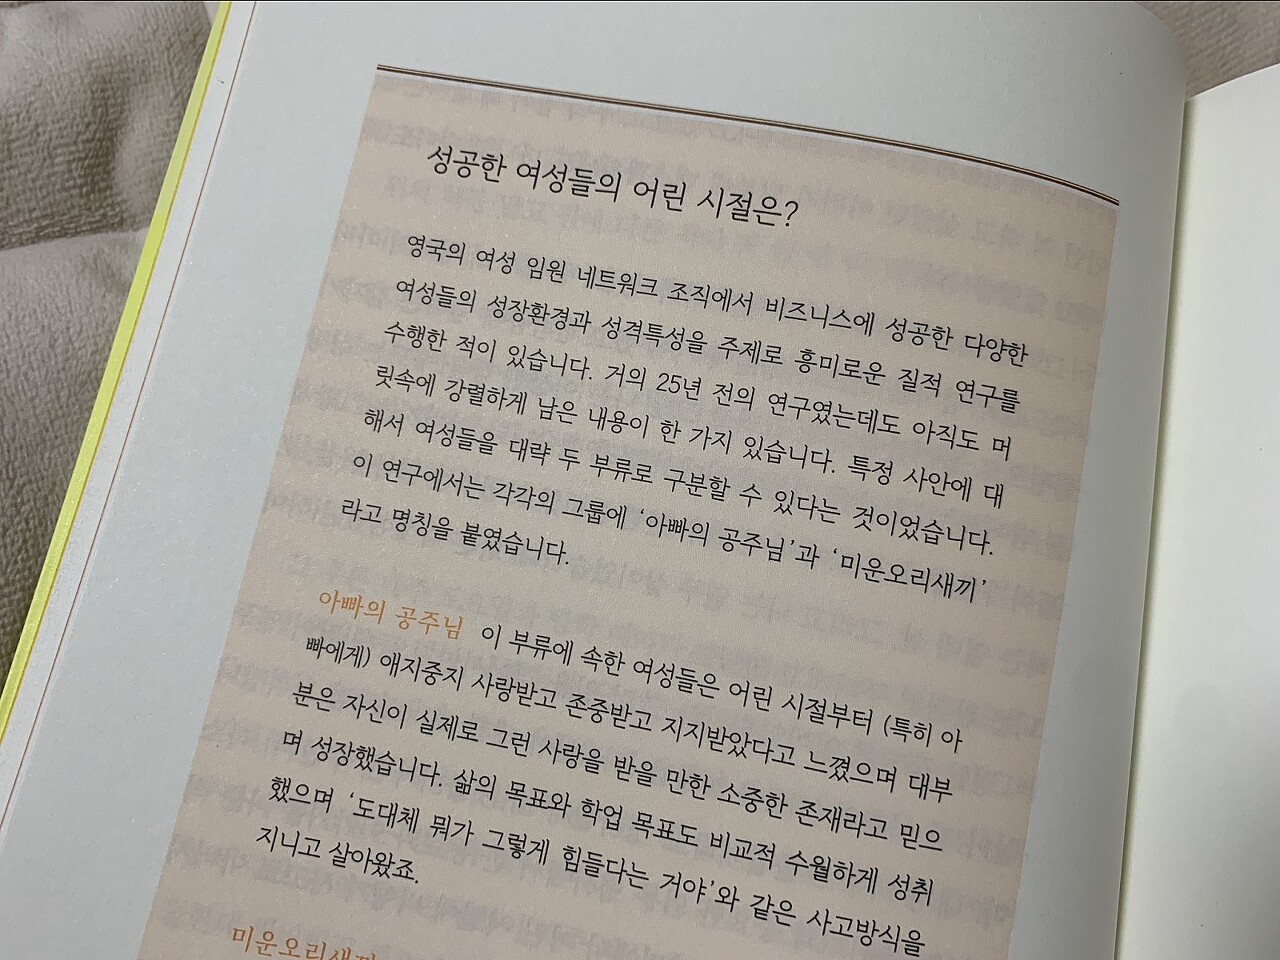 성공한 여성들의 어린 시절은?
영국의 여성 임원 네트워크 조직에서 비즈니스에 성공한 다양한
여성들의 성장환경과 성격특성을 주제로 흥미로운 질적 연구를
수행한 적이 있습니다. 거의 25년 전의 연구였는데도 아직도 머
릿속에 강렬하게 남은 내용이 한 가지 있습니다. 특정 사안에 대
해서 여성들을 대략 두 부류로 구분할 수 있다는 것이었습니다.
이 연구에서는 각각의 그룹에 ‘아빠의 공주님’과 ‘미운오리새끼’
라고 명칭을 붙였습니다.
아빠의 공주님 이 부류에 속한 여성들은 어린 시절부터 (특히 아
빠에게) 애지중지 사랑받고 존중받고 지지받았다고 느꼈으며 대부
분은 자신이 실제로 그런 사랑을 받을 만한 소중한 존재라고 믿으
며 성장했습니다. 삶의 목표와 학업 목표도 비교적 수월하게 성취
했으며 ‘도대체 뭐가 그렇게 힘들다는 거야’와 같은 사고방식을
지니고 살아왔죠.
미운오리새끼